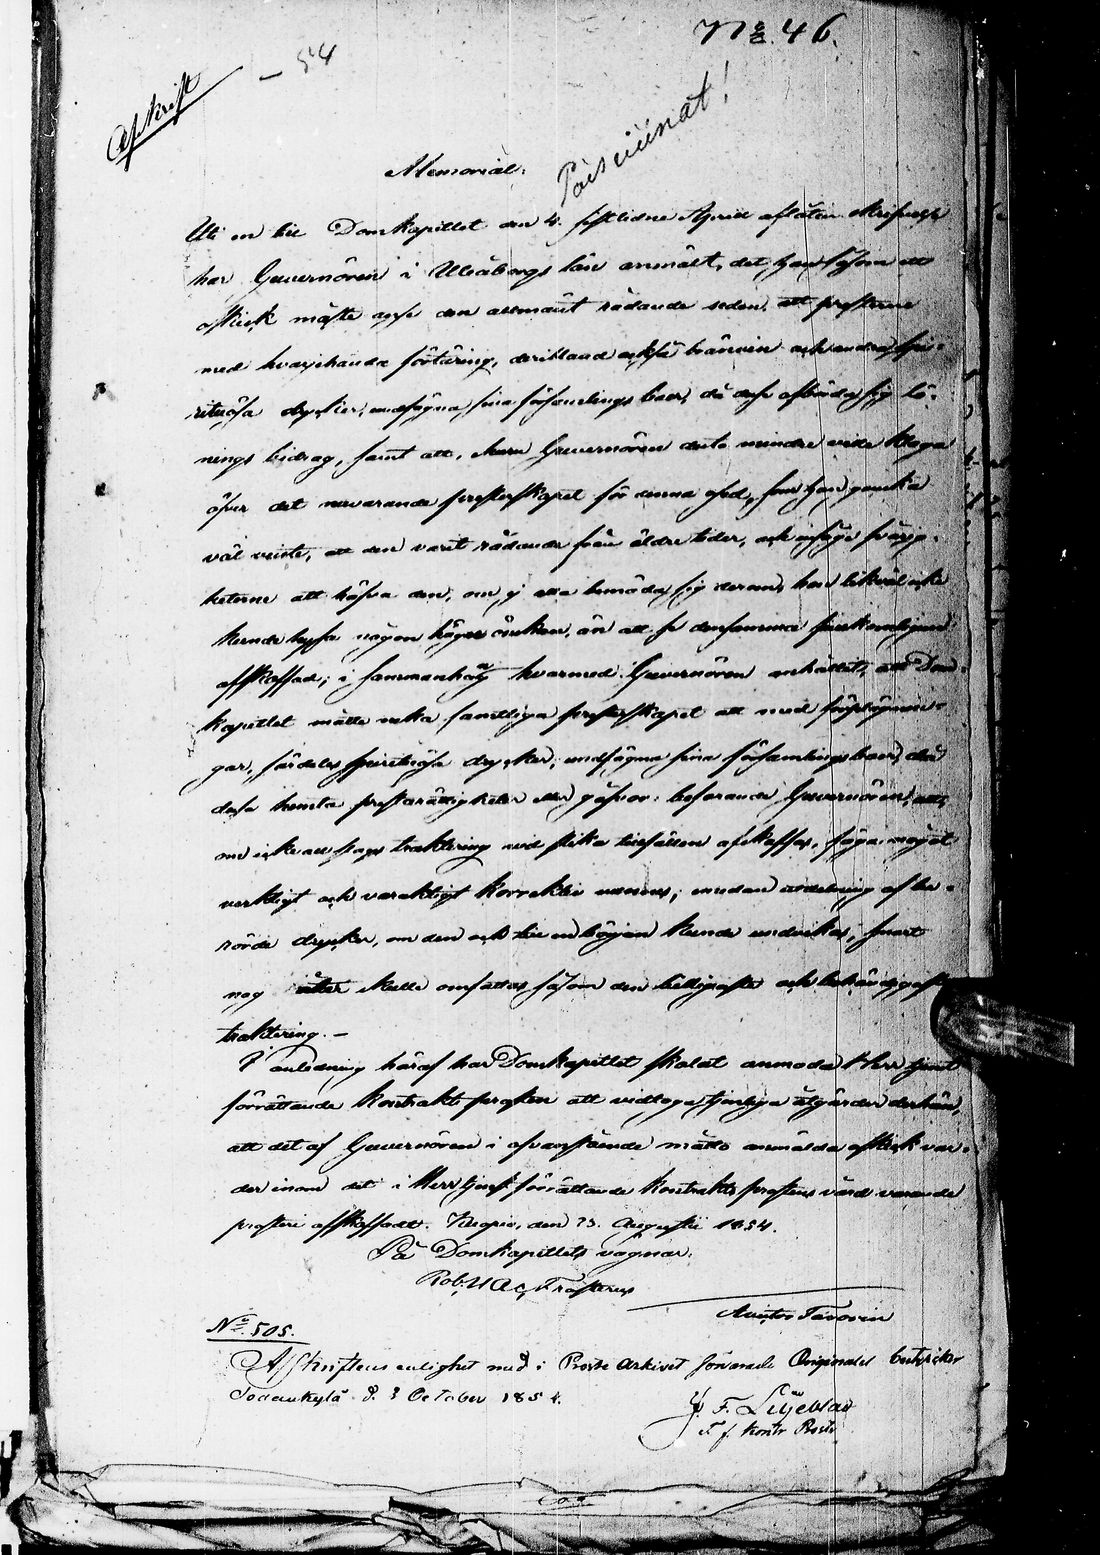 No 46.
– 54
Afskrift
Pois viinat!
Memorial.
Uti en till Domkapitlet den 4. sistlidne April aflåten skrifvelse
har Guvernören i Uleåborgs län anmält, det han såsom ett
oskick måste anse den allmänt rådande seden, att presterne
med hvarjehanda förtäring, deribland också bränvin och andra spi-
rituösa drycker, undfägna sina församlingsboer, då desse afbörda sig lö-
nings bidrag, samt att, ehuru Guvernören desto mindre ville klaga
öfver det nuvarande presterskapet för denna osed, som han ganska
väl visste, att den varit rådande från äldre tider, och insåge svårig-
heterne att häfva den, om ej alla bemöda sig derom, han likväl icke
kunde hysa någon högre önskan, än att se densamma fullkomligen
afskaffad; i sammanhang hvarmed Guvernören anhållit, att Dom-
kapitlet måtte neka samtliga presterskapet att med förplägnin-
gar, särdeles spirituösa drycker, undfägna sina församlingsboer, då
desse hemta prestarättigheter eller gåfvor: befarande Guvernören, att,
om icke all slags traktering vid slika tillfällen afskaffas, föga något
verkligt och varaktigt korrektiv vunnes; emedan utdelning af be-
rörde drycker, om den ock till en början kunde undvikas, snart
nog åter skulle omfattas såsom den billigaste och behändigaste
traktering. –
I anledning häraf har Domkapitlet skolat anmoda Herr tjenst
förrättande Kontraktsprosten att vidtaga tjenliga åtgärder derhän,
att det af Guvernören i ofvanstående måtto anmälda oskick var-
der inom det i Herr tjenstförrättande Kontraktsprostens vård varande
prosteri afskaffadt. Kuopio, den 23. Augusti 1854.
På Domkapitlets vägnar:
Rob. Val. Frosterus
Austos Tavonin
No 505.
Afskriftens enlighet med i Prostearkivet förvarade Originalet betygar
Sodankylä d. 3 October 1854.
J. F. Liljeblad
T. f. Kontr Prost